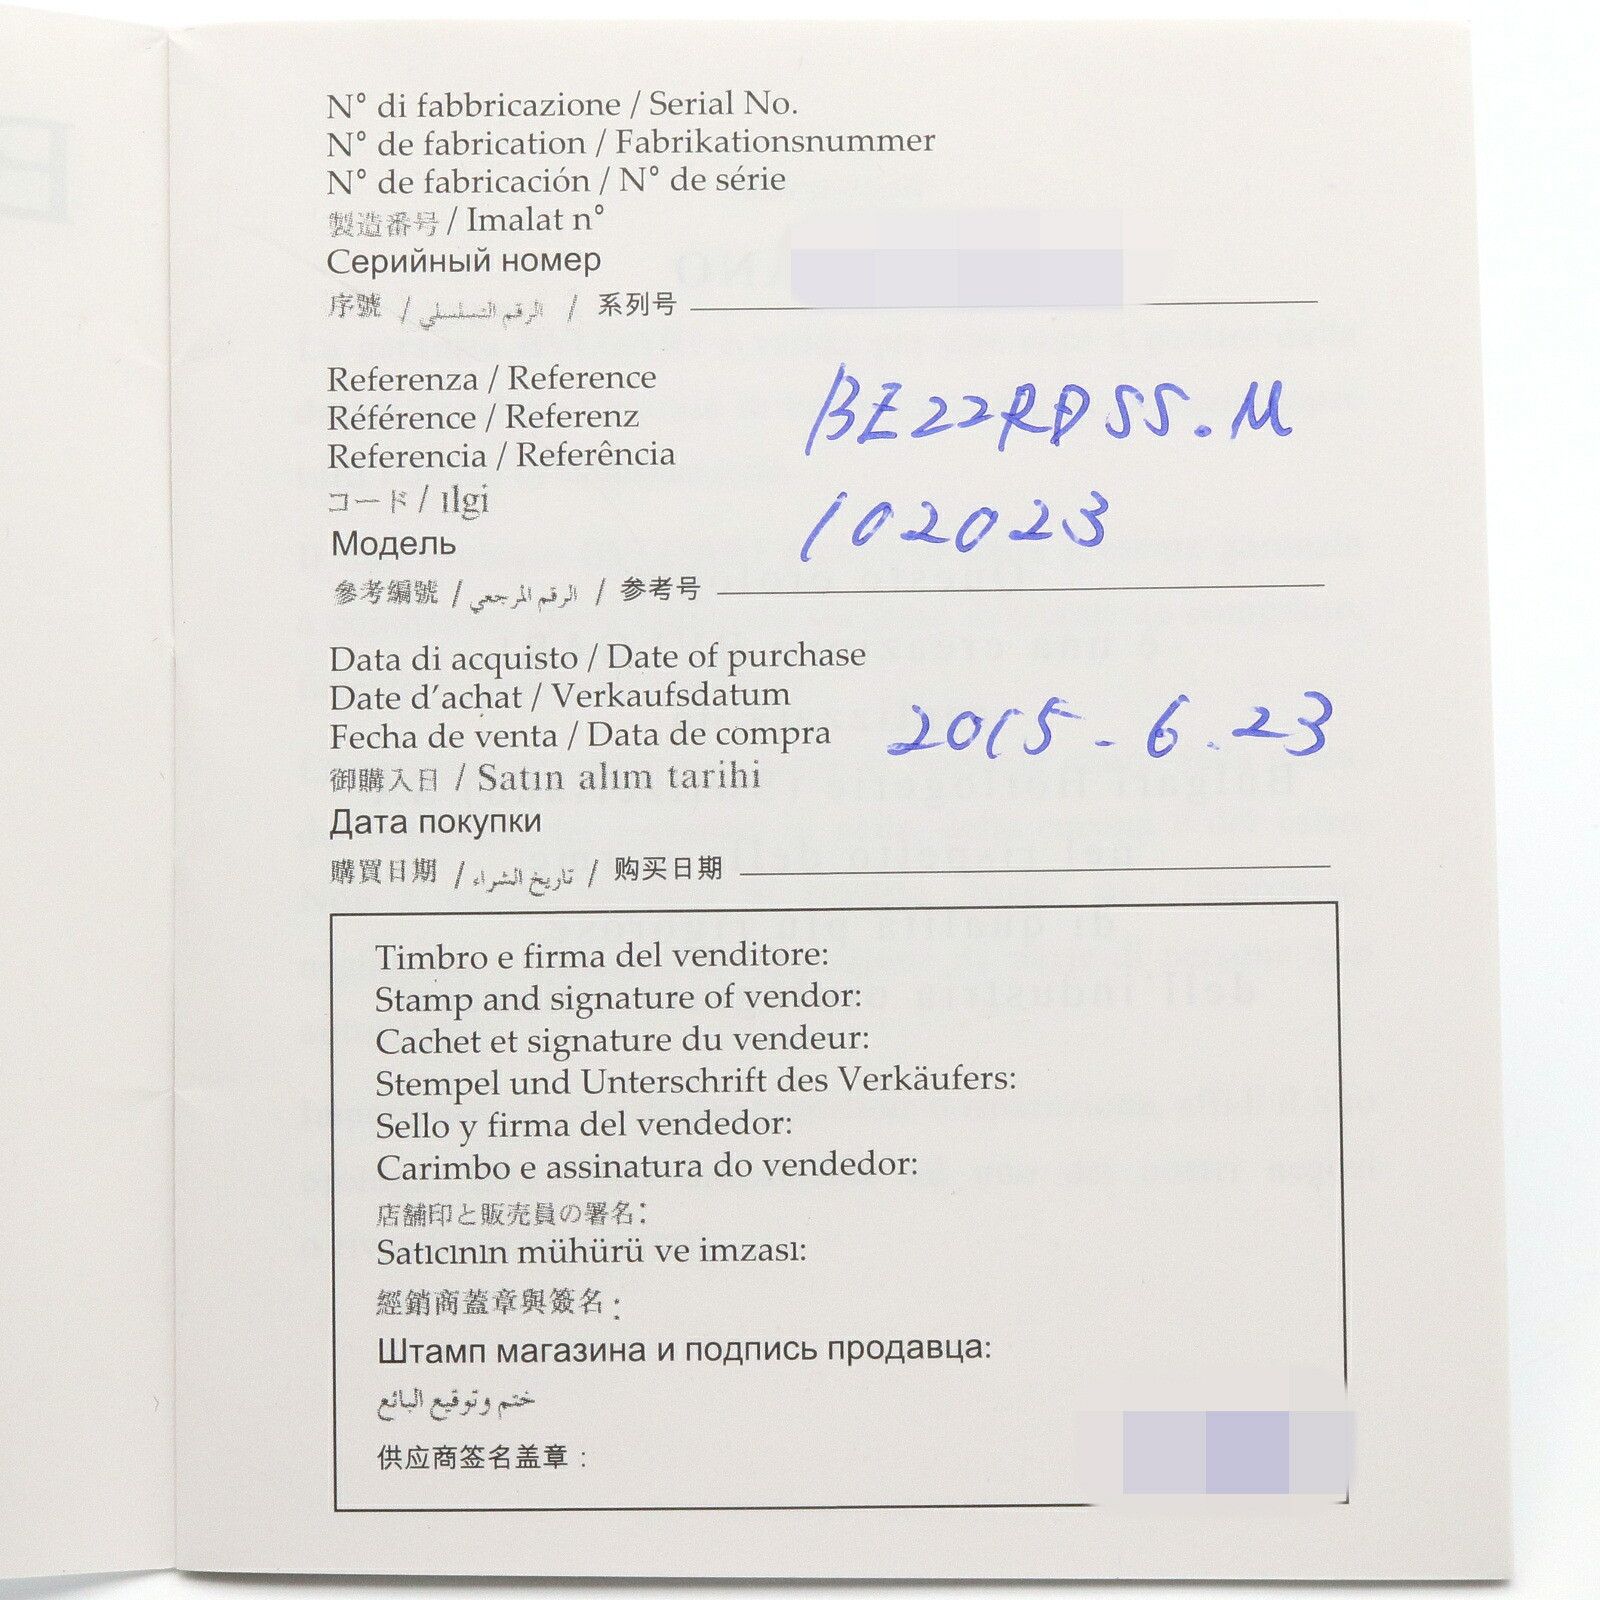 N° di fabbricazione / Serial No.
N° de fabrication / Fabrikationsnummer
N° de fabricación / N° de série
製造番号 / Imalat n°
Серийный номер
序號 / الرقم التسلسلي / 系列号
Referenza / Reference
Référence / Referenz
Referencia / Referência
コード / ılgi
Модель
參考編號 / الرقم المرجعي / 参考号
BE22RDSS.M
102023
Data di acquisto / Date of purchase
Date d'achat / Verkaufsdatum
Fecha de venta / Data de compra
御購入日 / Satın alım tarihi
Дата покупки
購買日期 / تاريخ الشراء / 购买日期
2015.6.23
Timbro e firma del venditore:
Stamp and signature of vendor:
Cachet et signature du vendeur:
Stempel und Unterschrift des Verkäufers:
Sello y firma del vendedor:
Carimbo e assinatura do vendedor:
店舗印と販売員の署名:
Satıcının mühürü ve imzası:
經銷商蓋章與簽名:
Штамп магазина и подпись продавца:
ختم وتوقيع البائع
供应商签名盖章：